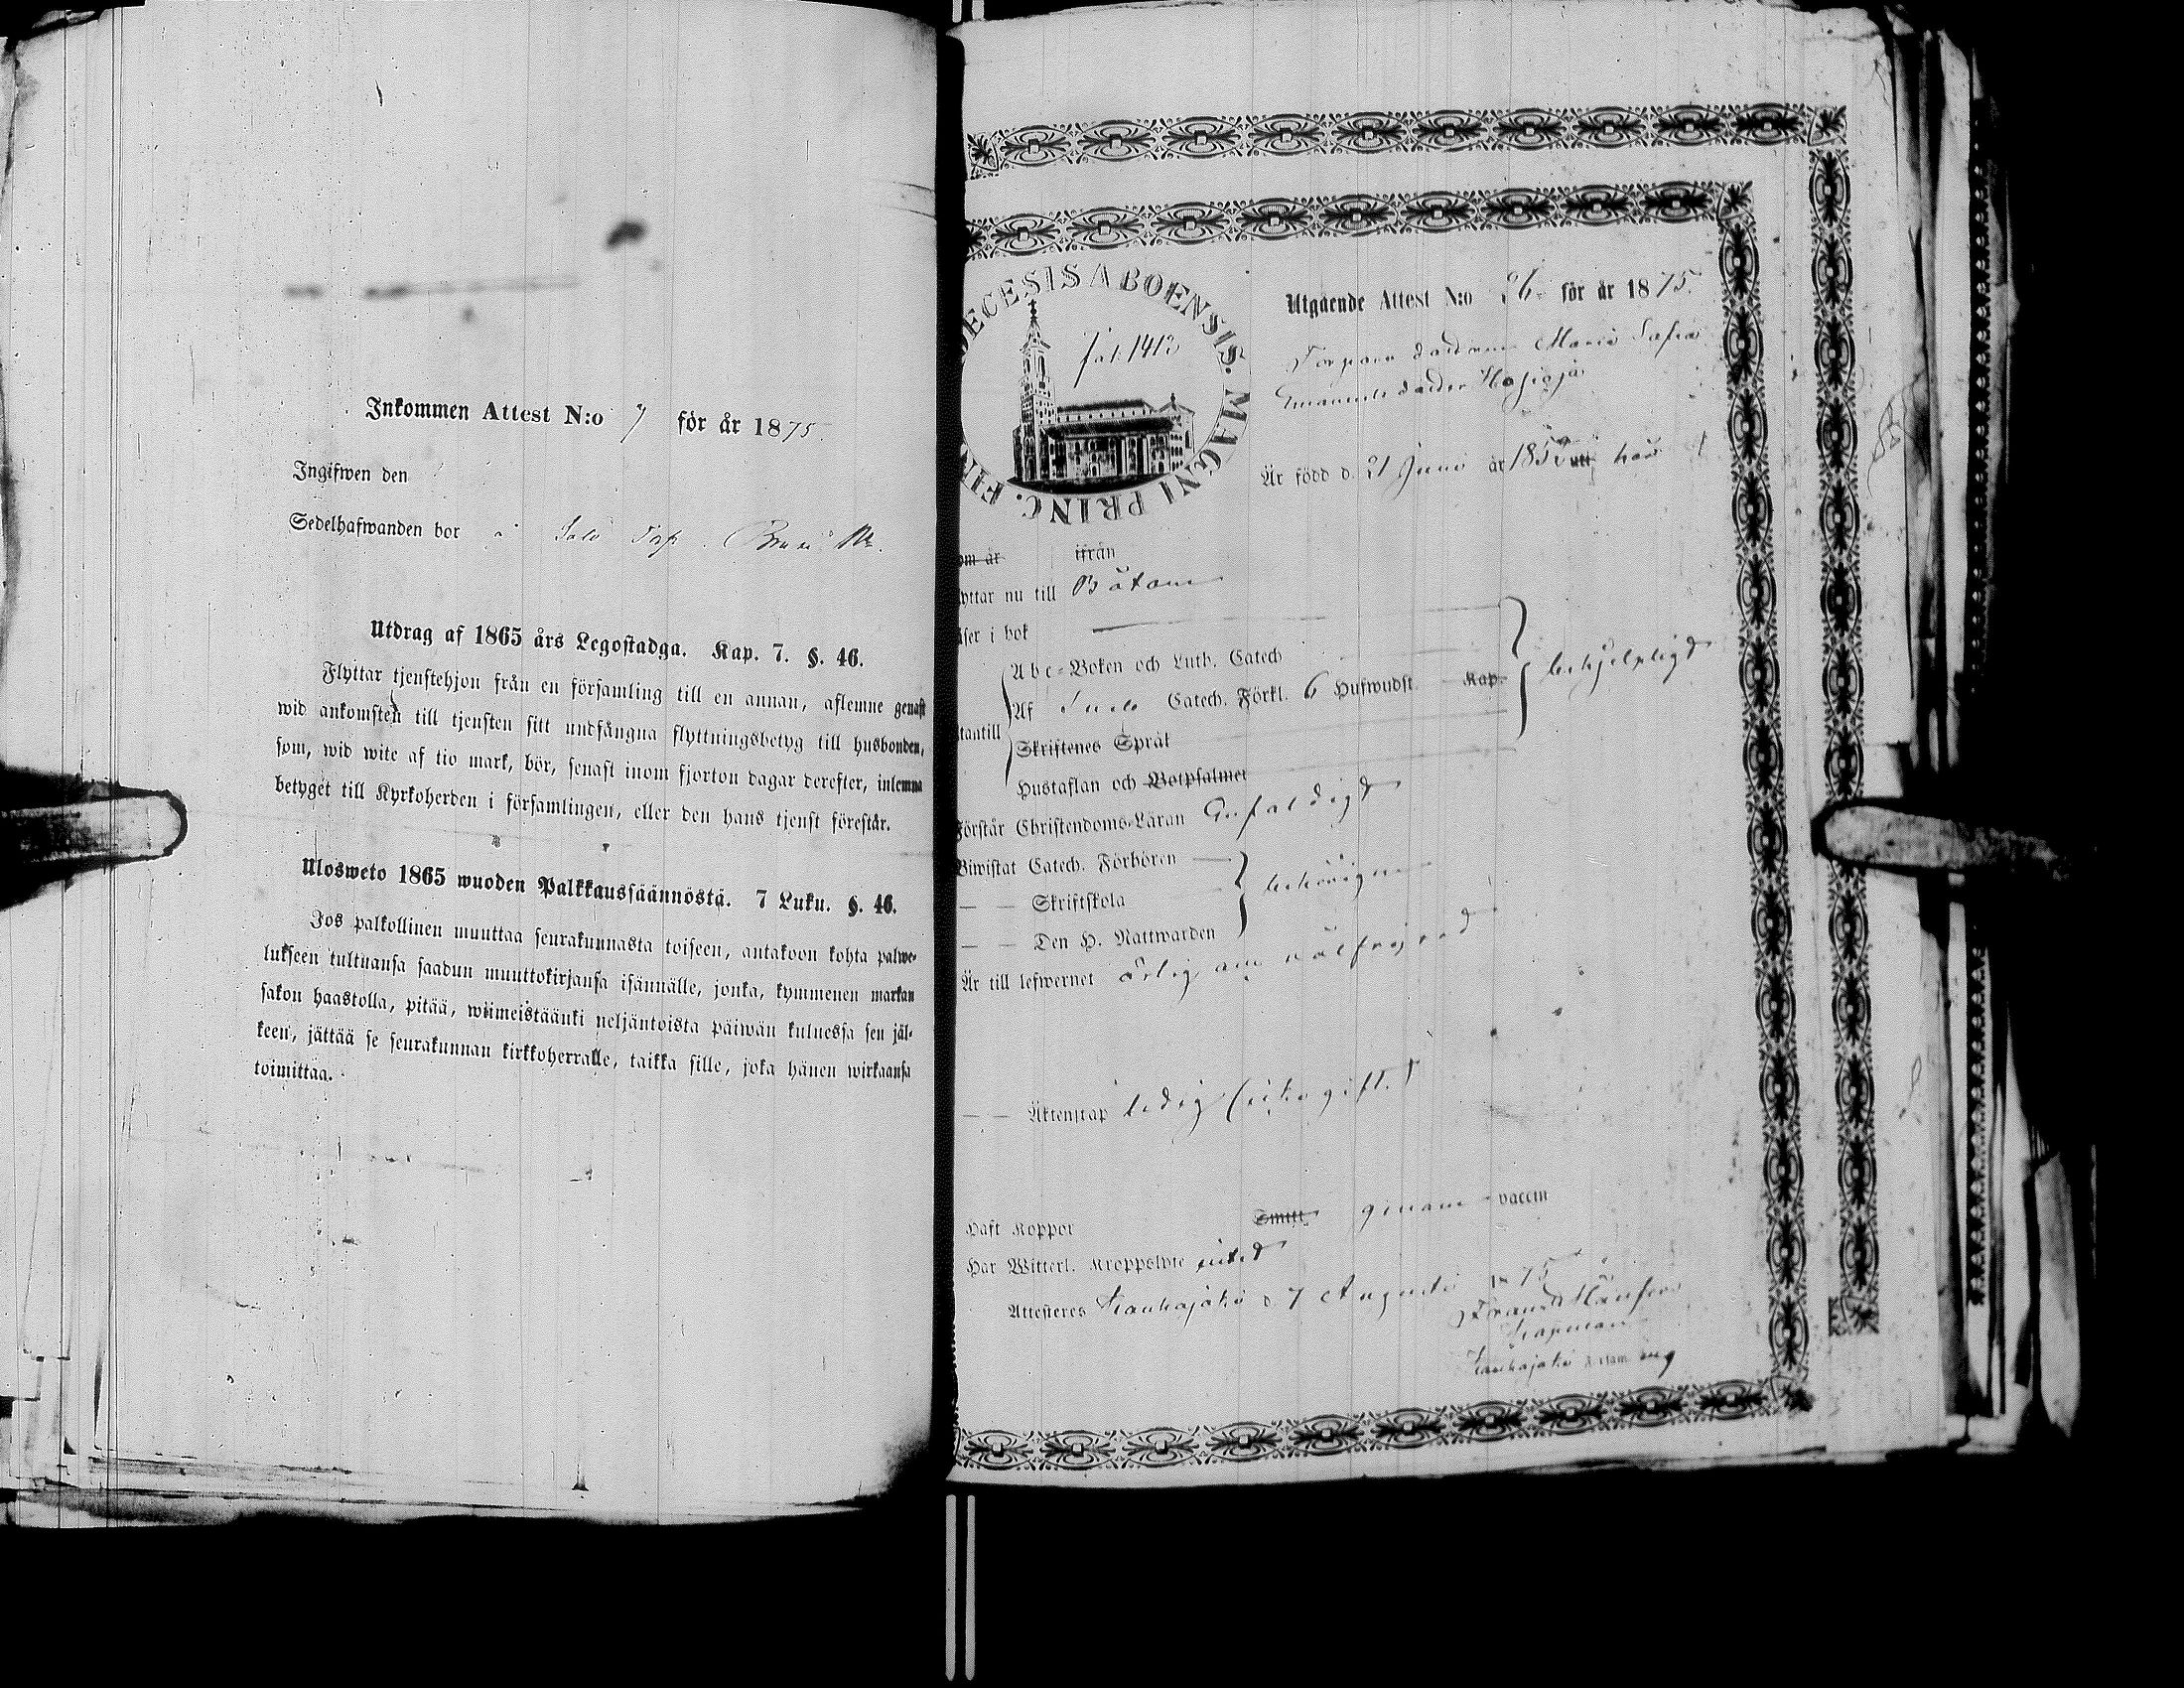 Inkommen Attest N:o 7 för år 1875.
Ingifwen den
Sedelhafwanden bor å Salo Torp.
Utdrag af 1865 års Legostadga. Kap. 7. §. 46.
Flyttar tjenstehjon från en församling till en annan, aflemne genast
wid ankomsten till tjensten sitt undfångna flyttningsbetyg till husbonden,
som, wid wite af tio mark, bör, senast inom fjorton dagar derefter, inlemna
betyget till Kyrkoherden i församlingen, eller den hans tjenst förestår.
Ulosweto 1865 wuoden Palkkaussäännöstä. 7 Luku. §. 46.
Jos palkollinen muuttaa seurakunnasta toiseen, antakoon kohta palwe-
lukseen tultuansa saadun muuttokirjansa isännälle, jonka, kymmenen markan
sakon haastolla, pitää, wiimeistäänki neljäntoista päiwän kuluessa sen jäl-
keen, jättää se seurakunnan kirkkoherralle, taikka sille, joka hänen wirkaansa
toimittaa.
ECESIS ABOENSIS. MAGNI PRINC. FIN
1413
Utgående Attest N:o 26 för år 1875
Torpare dottren Maria Safia
Emanuels dotter
Är född d. 21 Juni år 185
om är ifrån
yttar nu till Bötom
äser i bok
Abc-Boken och Luth. Catech
Af Catech. Förkl. 6 Hufwudst. Kap. behjelpligt
tantill
Skriftenes Språk
Hustaflan och Botpsalmer
Förstår Christendoms-Läran Enfaldigt
Biwistat Catech. Förhören
— — Skriftskola behörigen
— — Den H. Nattwarden
Är till lefwernet ärlig och välfrejdad
— — Äktenskap ledig (icke gift.)
Haft Koppor Smitt. genom vaccin
Har Witterl. Kroppslyte intet
Attesteres Kauhajoki d. 7 Augusti 1875
Frans
Kapellan
Kauhajoki